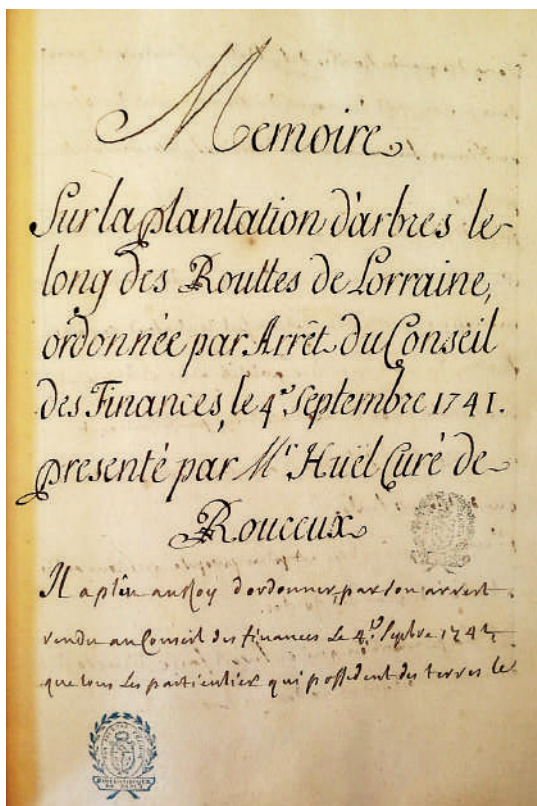 Memoire
Sur la plantation d'arbres le
long des Routtes de Lorraine,
ordonnée par Arrêt du Conseil
des Finances, le 4.e Septembre 1741.
presenté par Mr Huël Curé de
Rouceux
Il a plêu au Roy d'ordonner, par son arrest
rendu au Conseil des finances le 4.e Septbre 1741,
que tous les particulier qui possedent des terres le